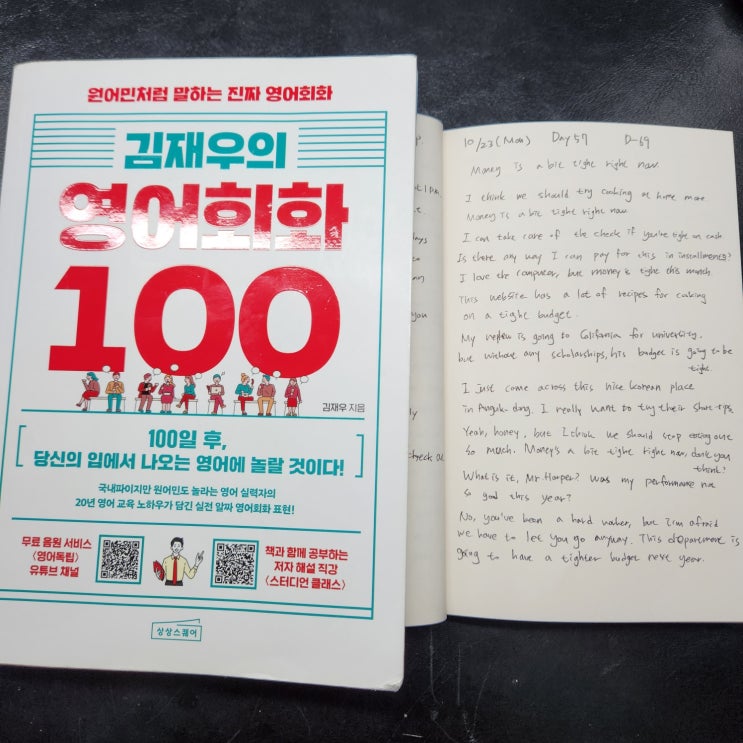 원어민처럼 말하는 진짜 영어회화
김재우의
영어회화
100
김재우 지음
100일 후,
당신의 입에서 나오는 영어에 놀랄 것이다!
국내파이지만 원어민도 놀라는 영어 실력자의
20년 영어 교육 노하우가 담긴 실전 알짜 영어회화 표현!
무료 음원 서비스
<영어독립>
유튜브 채널
책과 함께 공부하는
저자 해설 직강
<스터디언 클래스>
상상스퀘어
10/23 (Mon) Day 57 D-69
Money is a bit tight right now.
I think we should try cooking at home more
Money is a bit tight right now
I can take care of the check if you're tight on cash
Is there any way I can pay for this in installments?
I love the computer, but money is tight this month
This website has a lot of recipes for cooking
on a tight budget.
My nephew is going to California for university.
but without any scholarships, his budget is going to be
tight.
I just come across this nice Korean place
in dong. I really want to try their short rips.
Yeah, honey, but I think we should stop eating out
so much. Money's a bit tight right now, don't you
think?
What is it, Mr Harper? Was my performance not
so good this year?
No, you've been a hard worker, but I'm afraid
we have to let you go anyway. This department is
going to have a tighter budget next year.
you
check out